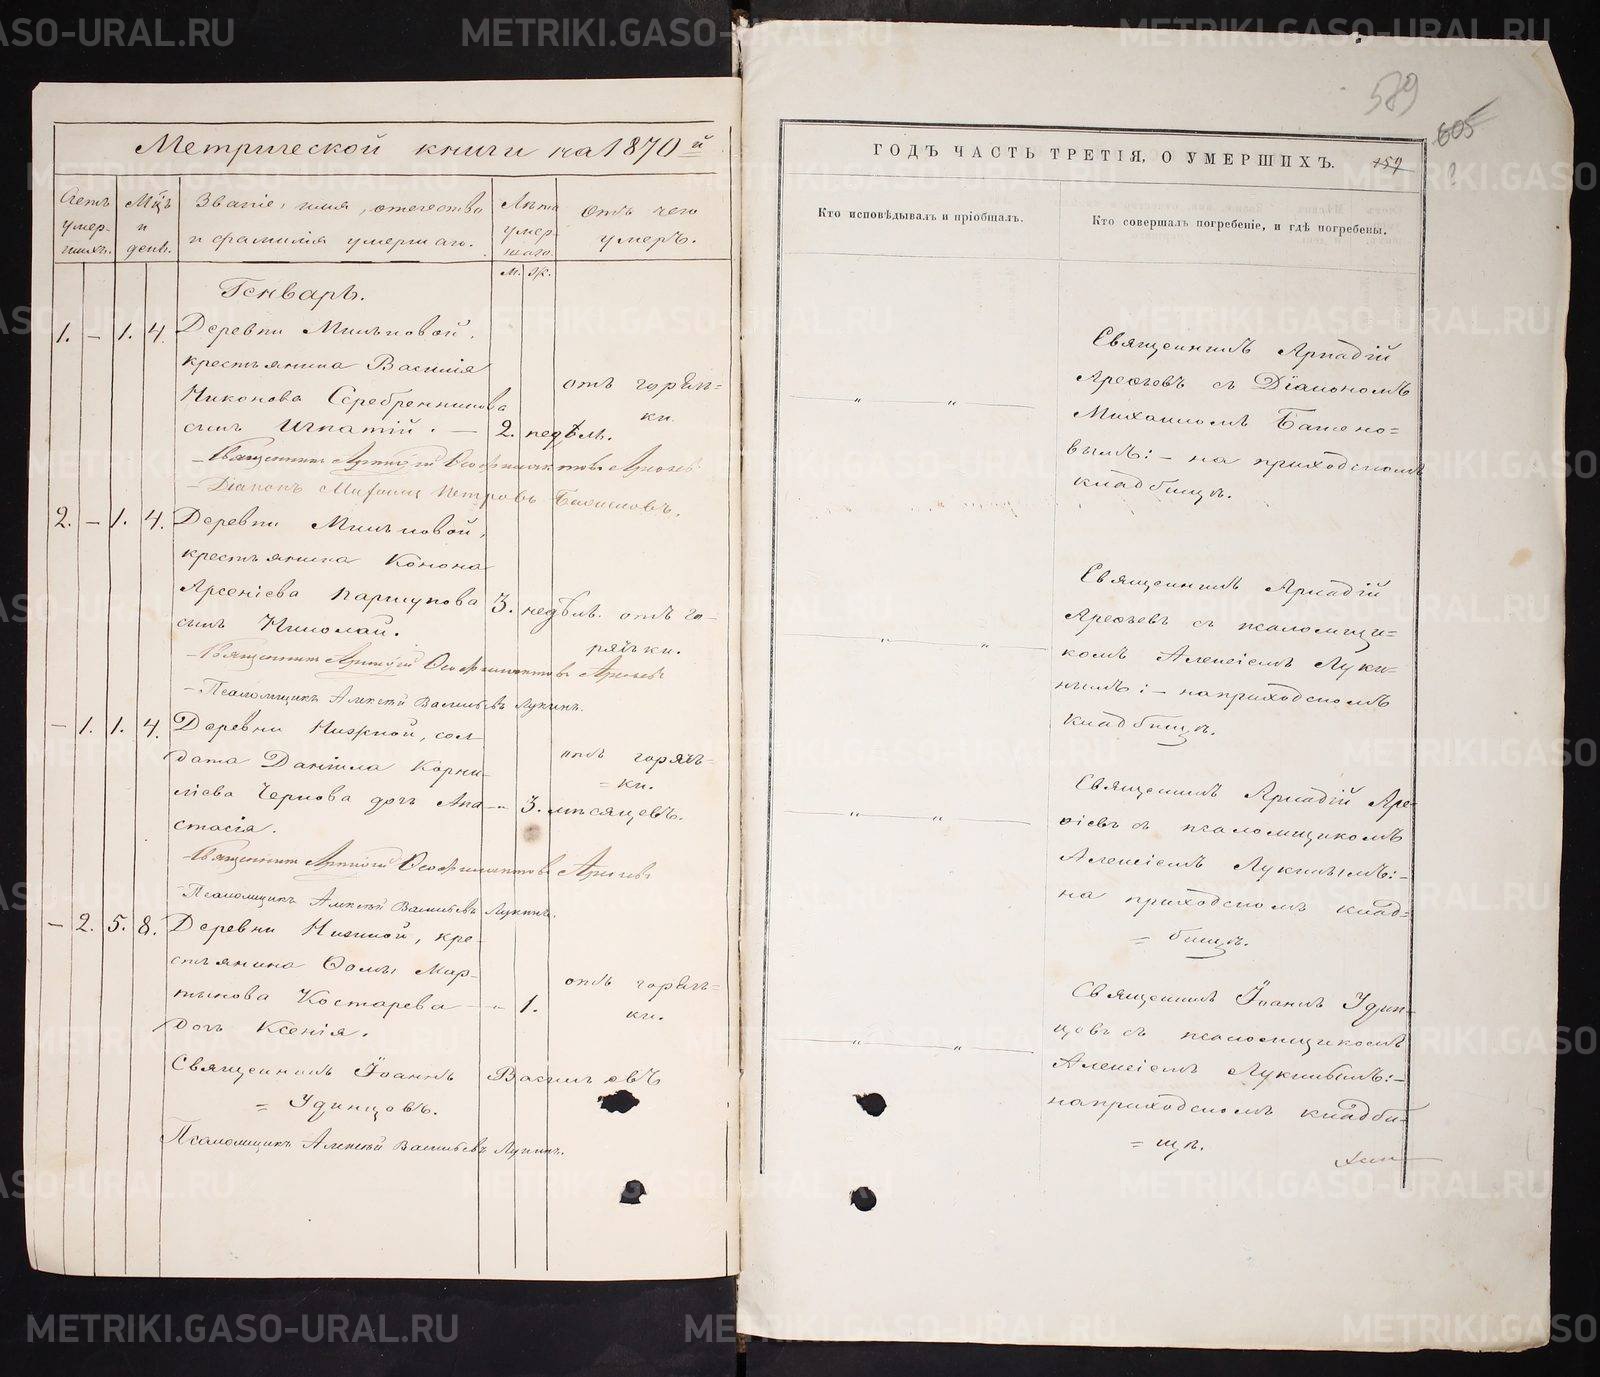 Метрической книги на 1870й
Счетъ умер-шихъ.
Мцъ и день.
Званіе, имя, отечество и фамилія умершаго.
Лѣта умер-шаго.
М. Ж.
Отъ чего умеръ.
Генварь.
1. – 1. 4. Деревни Мильковой,
крестьянина Василія
Никонова Серебренникова
сынъ Игнатій. – 2. недѣль.
отъ горяч=
ки.
Діаконъ Михаилъ Петровъ
2. – 1. 4. Деревни Мильковой,
крестьянина Конона
Арсеніева Паршукова 3. недѣль. отъ го-
сынъ Николай.
рячки.
– Псаломщикъ Алексѣй Васильевъ Лукинъ.
– 1. 1. 4. Деревни Нижной, сол-
дата Даніила Корни-
ліева Чернова дочь Ана- „ 3. мѣсяцевъ.
стасія.
отъ горяч=
=ки.
Псаломщикъ Алексѣй Васильевъ Лукинъ.
– 2. 5. 8. Деревни Нижной, кре-
стьянина Ѳомы Мар-
тынова Костарева – „ 1.
дочь Ксенія.
отъ горяч=
ки.
Священникъ Іоаннъ Васильевъ
= Удинцовъ.
Псаломщикъ Алексѣй Васильевъ Лукинъ.
589
605
159
ГОДЪ ЧАСТЬ ТРЕТІЯ, О УМЕРШИХЪ.
Кто исповѣдывалъ и пріобщалъ.
Кто совершалъ погребеніе, и гдѣ погребены.
„ „
Священникъ Аркадій
Арефьевъ съ Діакономъ
Михаиломъ
вымъ: – на приходскомъ
кладбищѣ.
„ „
Священникъ Аркадій
Арефьевъ съ псаломщи=
комъ Алексіемъ Луки-
нымъ: – на приходскомъ
кладбищѣ.
„ „
Священникъ Аркадій Аре-
фьевъ съ псаломщикомъ
Алексіемъ Лукинымъ: –
на приходскомъ клад=
= бищѣ.
„ „
Священникъ Іоаннъ Удин-
цовъ съ псаломщикомъ
Алексіемъ Лукинымъ: –
на приходскомъ кладби-
= щѣ.
METRIKI.GASO-URAL.RU